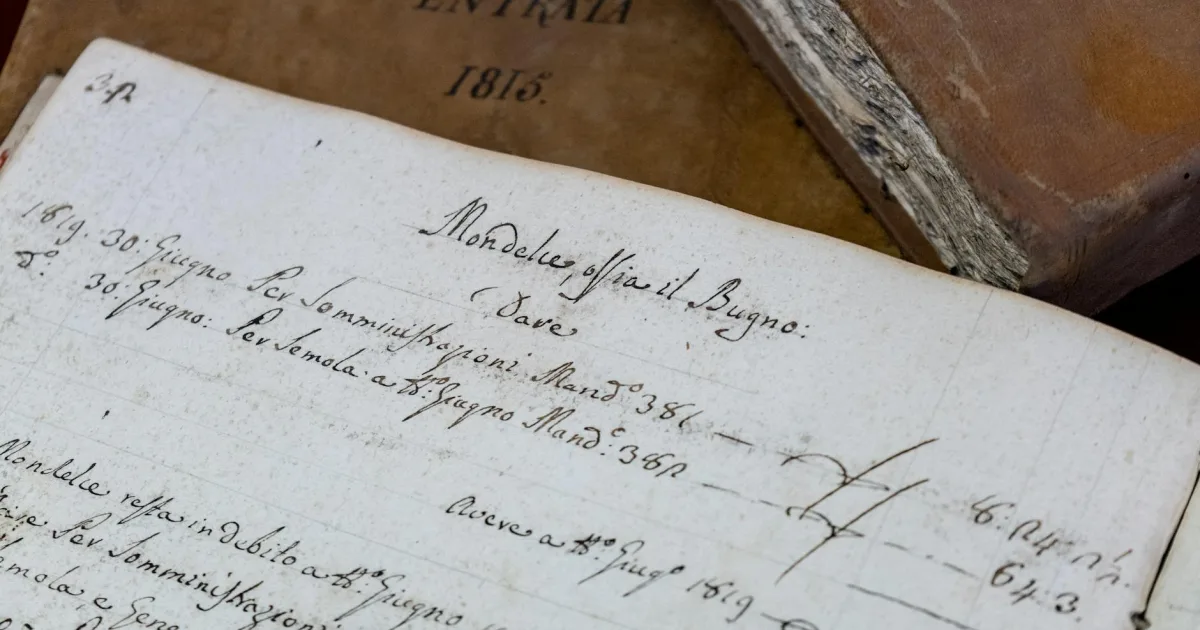 ENTRATA
1815.
Mondelce, ossia il Bugno:
Dare
1819. 30: Giugno Per Somministrazioni Mand.º 381
d.º 30. Giugno: Per Semola a tt.º Giugno Mand.º: 382
64: 3.
Avere a tt.º Giug.º 1819
Mondelce resta in debito a tt.º Giugno
Per Somministrazioni
Semola, e